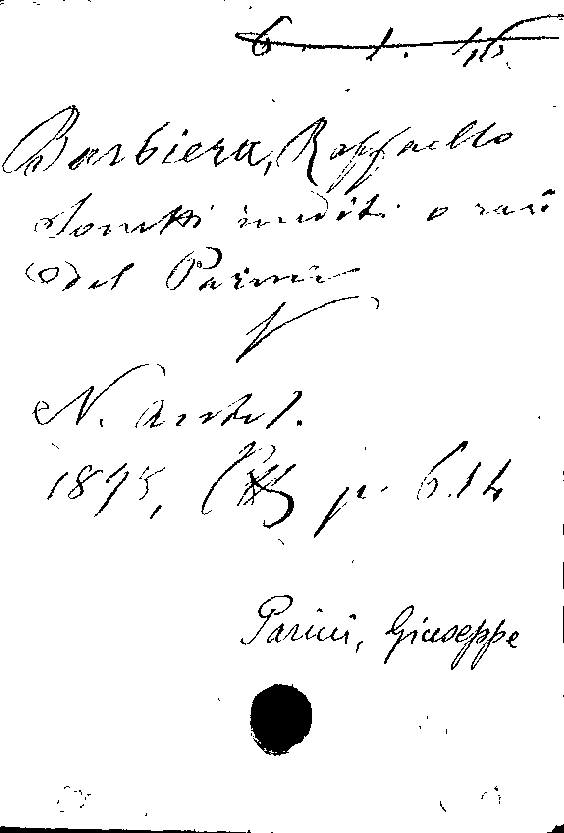 6. 1. 46
Barbiera, Raffaello
Sonetti inediti o rari
del Parini
N. Antol.
1895, p. 614
Parini, Giuseppe